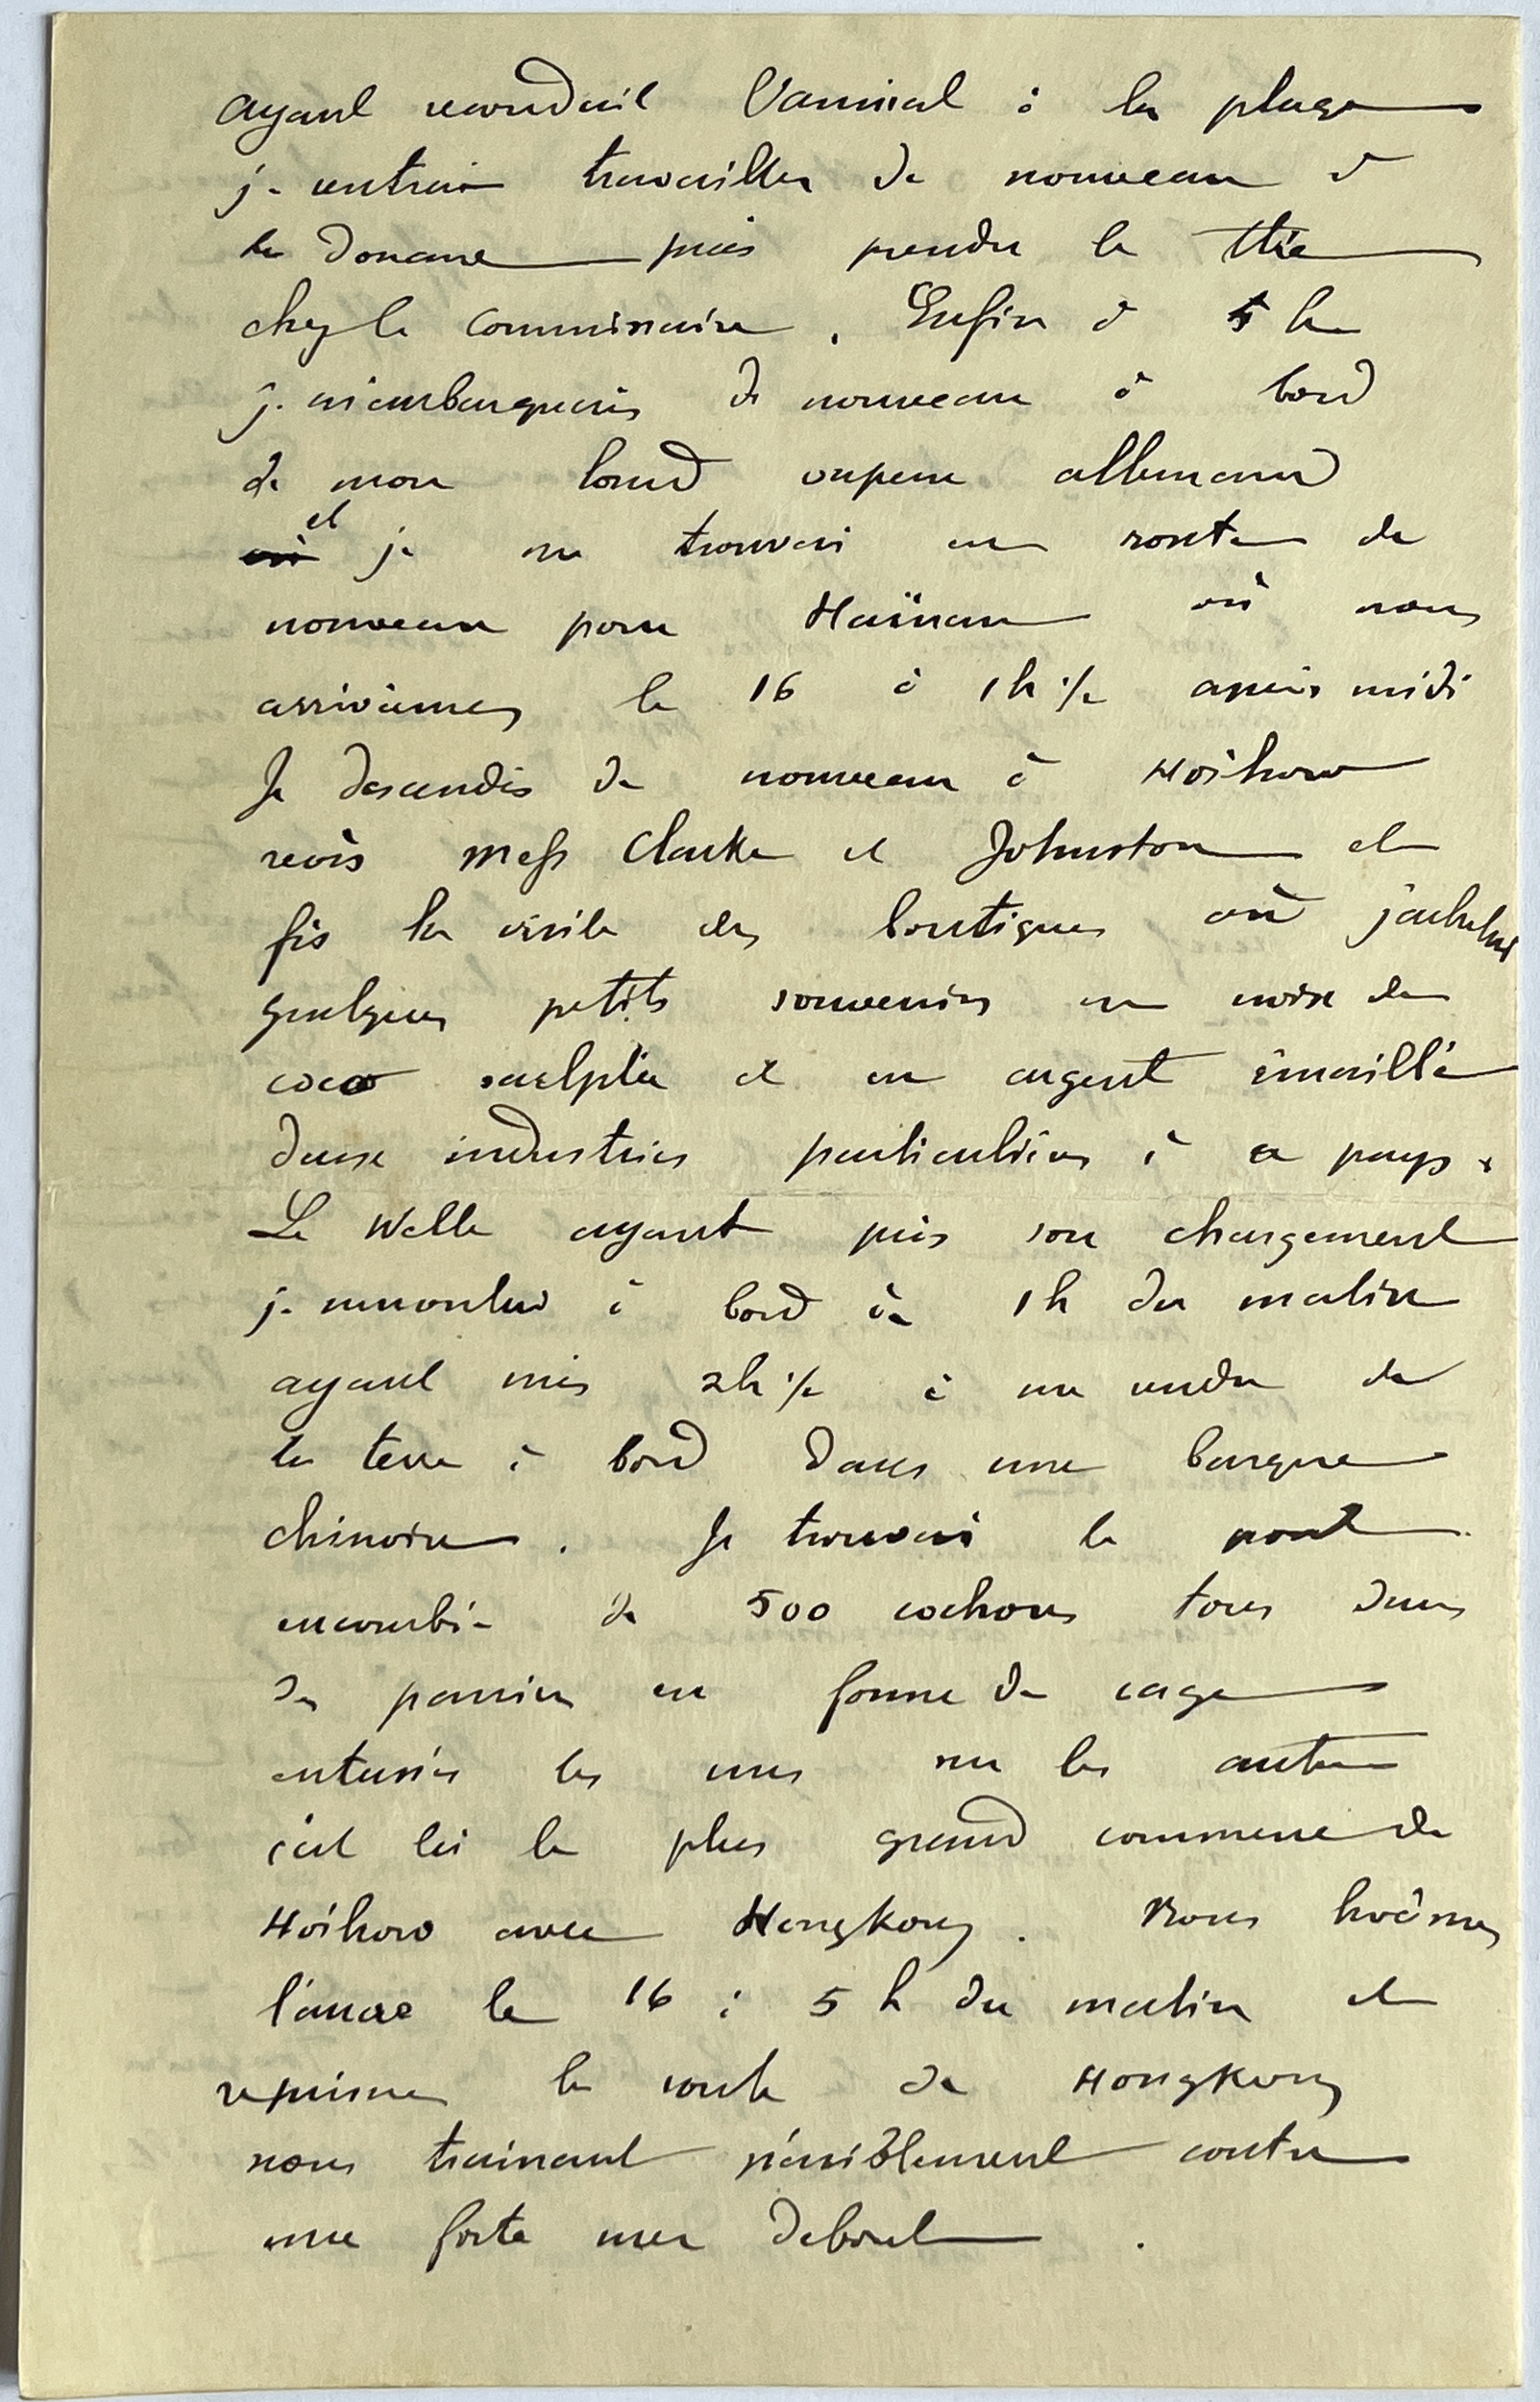 ayant reconduit l'amiral à la plage
je rentrai travailler de nouveau à
la Douane puis prendre le thé
chez le commissaire. Enfin à 5 h
je m'embarquais de nouveau à bord
de mon lourd vapeur allemand
et je me trouvai en route de
nouveau pour Haïnan où nous
arrivâmes le 16 à 1h ½ après midi
Je descendis de nouveau à Hoihow
revis Mess Clarke et Johnston et
fis la visite des boutiques où j'achetai
quelques petits souvenirs en noix de
coco sculptée et en argent émaillé
deux industries particulières à ce pays.
Le Welle ayant pris son chargement
je remontai à bord à 1h du matin
ayant mis 2h ½ à me rendre de
la terre à bord dans une barque
chinoise. Je trouvai le pont
encombré de 500 cochons tous dans
des paniers en forme de cage
entassés les uns sur les autres
c'est là le plus grand commerce de
Hoihow avec Hongkong. Nous levâmes
l'ancre le 16 à 5 h du matin et
reprîmes la route de Hongkong
nous trainant péniblement contre
une forte mer debout.